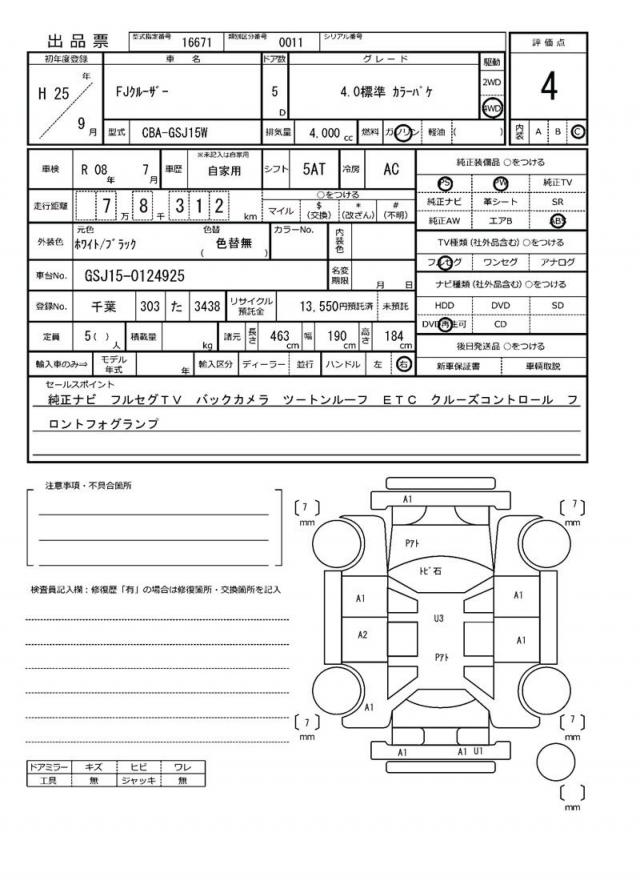 出品票 型式指定番号 16671 類別区分番号 0011 シリアル番号
初年度登録 車名 ドア数 グレード 駆動 評価点
H 25 年 9 月 FJクルーザー 5 D 4.0標準 カラーパケ 2WD 4WD 4
型式 CBA-GSJ15W 排気量 4,000 cc 燃料 ガソリン 軽油 ( ) 内装 A B C
車検 R 08 年 7 月 車歴 ※未記入は自家用 自家用 シフト 5AT 冷房 AC 純正装備品 ○をつける
PS PW 純正TV
走行距離 7 万 8 千 3 1 2 km ○をつける マイル $ (交換) * (改ざん) # (不明) 純正ナビ 革シート SR
純正AW エアB ABS
外装色 元色 ホワイト/ブラック 色替 ( 色替無 ) カラーNo. 内装色 TV種類 (社外品含む) ○をつける
フルセグ ワンセグ アナログ
車台No. GSJ15-0124925 名変期限 月 日 ナビ種類 (社外品含む) ○をつける
登録No. 千葉 303 た 3438 リサイクル預託金 13,550円預託済 未預託 HDD DVD SD
DVD再生可 CD
定員 5( ) 人 積載量 kg 諸元 長さ 463 cm 幅 190 cm 高さ 184 cm 後日発送品 ○をつける
輸入車のみ⇒ モデル年式 年 輸入区分 ディーラー 並行 ハンドル 左 右 新車保証書 車輌取説
セールスポイント
純正ナビ フルセグTV バックカメラ ツートンルーフ ETC クルーズコントロール フ
ロントフォグランプ
注意事項・不具合箇所
検査員記入欄：修復歴「有」の場合は修復箇所・交換箇所を記入
ドアミラー キズ ヒビ ワレ
工具 無 ジャッキ 無
A1
[ 7 ] mm [ 7 ] mm
Pアト
トビ石
A1 A1
U3
A2 A1
Pアト
A1
[ 7 ] mm [ 7 ] mm
A1 A1 U1
[ ] mm